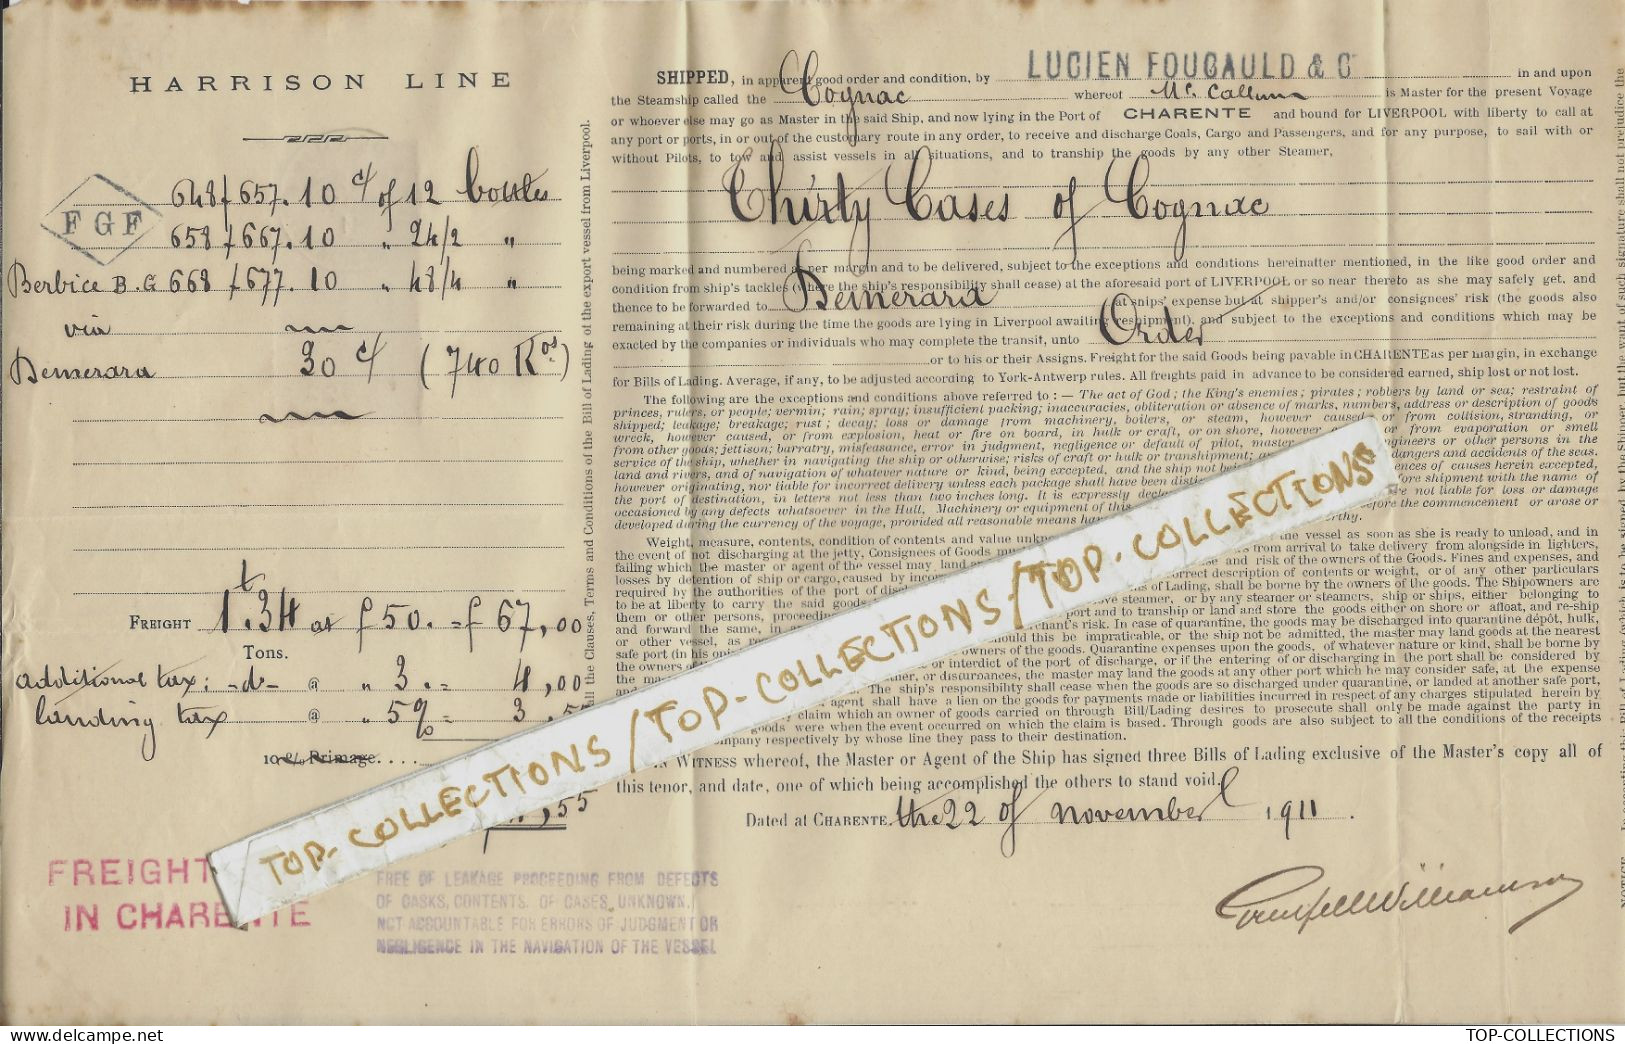 HARRISON LINE
FGF
648/657. 10 c/ of 12 bottles
658/667. 10 " 24/2 "
Berbice B.G 668/677. 10 " 48/4 "
via
Demerara 30 c/ (740 Kos)
FREIGHT 1t.34 at f 50. = f 67,00
Tons.
additional tax: -d- @ " 3. = 4,00
landing tax @ " 5% = 3
10 % Primage.
,55
FREIGHT
IN CHARENTE
FREE OF LEAKAGE PROCEEDING FROM DEFECTS
OF CASKS, CONTENTS. OF CASES, UNKNOWN.
NOT ACCOUNTABLE FOR ERRORS OF JUDGMENT OR
NEGLIGENCE IN THE NAVIGATION OF THE VESSEL
all the Clauses, Terms and Conditions of the Bill of Lading of the export vessel from Liverpool.
SHIPPED, in apparent good order and condition, by LUCIEN FOUCAULD & Co in and upon
the Steamship called the Cognac whereof Mc. Callum is Master for the present Voyage
or whoever else may go as Master in the said Ship, and now lying in the Port of CHARENTE and bound for LIVERPOOL with liberty to call at
any port or ports, in or out of the customary route in any order, to receive and discharge Coals, Cargo and Passengers, and for any purpose, to sail with or
without Pilots, to tow and assist vessels in all situations, and to tranship the goods by any other Steamer,
Thirty Cases of Cognac
being marked and numbered as per margin and to be delivered, subject to the exceptions and conditions hereinatter mentioned, in the like good order and
condition from ship's tackles (where the ship's responsibility shall cease) at the aforesaid port of LIVERPOOL or so near thereto as she may safely get, and
thence to be forwarded to Demerara at ships' expense but at shipper's and/or consignees' risk (the goods also
remaining at their risk during the time the goods are lying in Liverpool awaiting reshipment), and subject to the exceptions and conditions which may be
exacted by the companies or individuals who may complete the transit, unto Order
or to his or their Assigns. Freight for the said Goods being payable in CHARENTE as per margin, in exchange
for Bills of Lading. Average, if any, to be adjusted according to York-Antwerp rules. All freights paid in advance to be considered earned, ship lost or not lost.
The following are the exceptions and conditions above referred to : — The act of God ; the King's enemies ; pirates ; robbers by land or sea; restraint of
princes, rulers, or people; vermin; rain; spray; insufficient packing; inaccuracies, obliteration or absence of marks, numbers, address or description of goods
shipped; leakage; breakage; rust ; decay; loss or damage from machinery, boilers, or steam, however caused; or from collision, stranding, or
wreck, however caused, or from explosion, heat or fire on board, in hulk or craft, or on shore, however or from evaporation or smell
from other goods; jettison; barratry, misfeasance, error in judgment, negligence or default of pilot, master engineers or other persons in the
service of the ship, whether in navigating the ship or otherwise; risks of craft or hulk or transhipment; dangers and accidents of the seas.
land and rivers, and of navigation of whatever nature or kind, being excepted, and the ship not ences of causes herein excepted,
however originating, nor liable for incorrect delivery unless each package shall have been fore shipment with the name of
the port of destination, in letters not less than two inches long. It is expressly not liable for loss or damage
occasioned by any defects whatsoever in the Hull, Machinery or equipment of this before the commencement or arose or
developed during the currency of the voyage, provided all reasonable means rthy.
Weight, measure, contents, condition of contents and value the vessel as soon as she is ready to unload, and in
the event of not discharging at the jetty, Consignees of Goods from arrival to take delivery from alongside in lighters,
failing which the master or agent of the vessel may land and risk of the owners of the Goods. Fines and expenses, and
losses by detention of ship or cargo, caused by correct description of contents or weight, or of any other particulars
required by the authorities of the port of of Lading, shall be borne by the owners of the goods. The Shipowners are
to be at liberty to carry the said goods steamer, or by any steamer or steamers, ship or ships, either belonging to
them or other persons, port and to tranship or land and store the goods either on shore or afloat, and re-ship
and forward the same, in chant's risk. In case of quarantine, the goods may be discharged into quarantine dépôt, hulk,
or other vessel, as should this be impraticable, or the ship not be admitted, the master may land goods at the nearest
safe port (in his owners of the goods. Quarantine expenses upon the goods, of whatever nature or kind, shall be borne by
the owners or interdict of the port of discharge, or if the entering of or discharging in the port shall be considered by
the or disurances, the master may land the goods at any other port which he may consider safe, at the expense
The ship's responsibility shall cease when the goods are so discharged under quarantine, or landed at another safe port,
agent shall have a lien on the goods for payments made or liabilities incurred in respect of any charges stipulated herein by
claim which an owner of goods carried on through Bill/Lading desires to prosecute shall only be made against the party in
goods were when the event occurred on which the claim is based. Through goods are also subject to all the conditions of the receipts
mpany respectively by whose line they pass to their destination.
IN WITNESS whereof, the Master or Agent of the Ship has signed three Bills of Lading exclusive of the Master's copy all of
this tenor, and date, one of which being accomplished the others to stand void.
Dated at CHARENTE, the 22 of november 1911
TOP-COLLECTIONS / TOP-COLLECTIONS / TOP-COLLECTIONS
TOP-COLLECTIONS